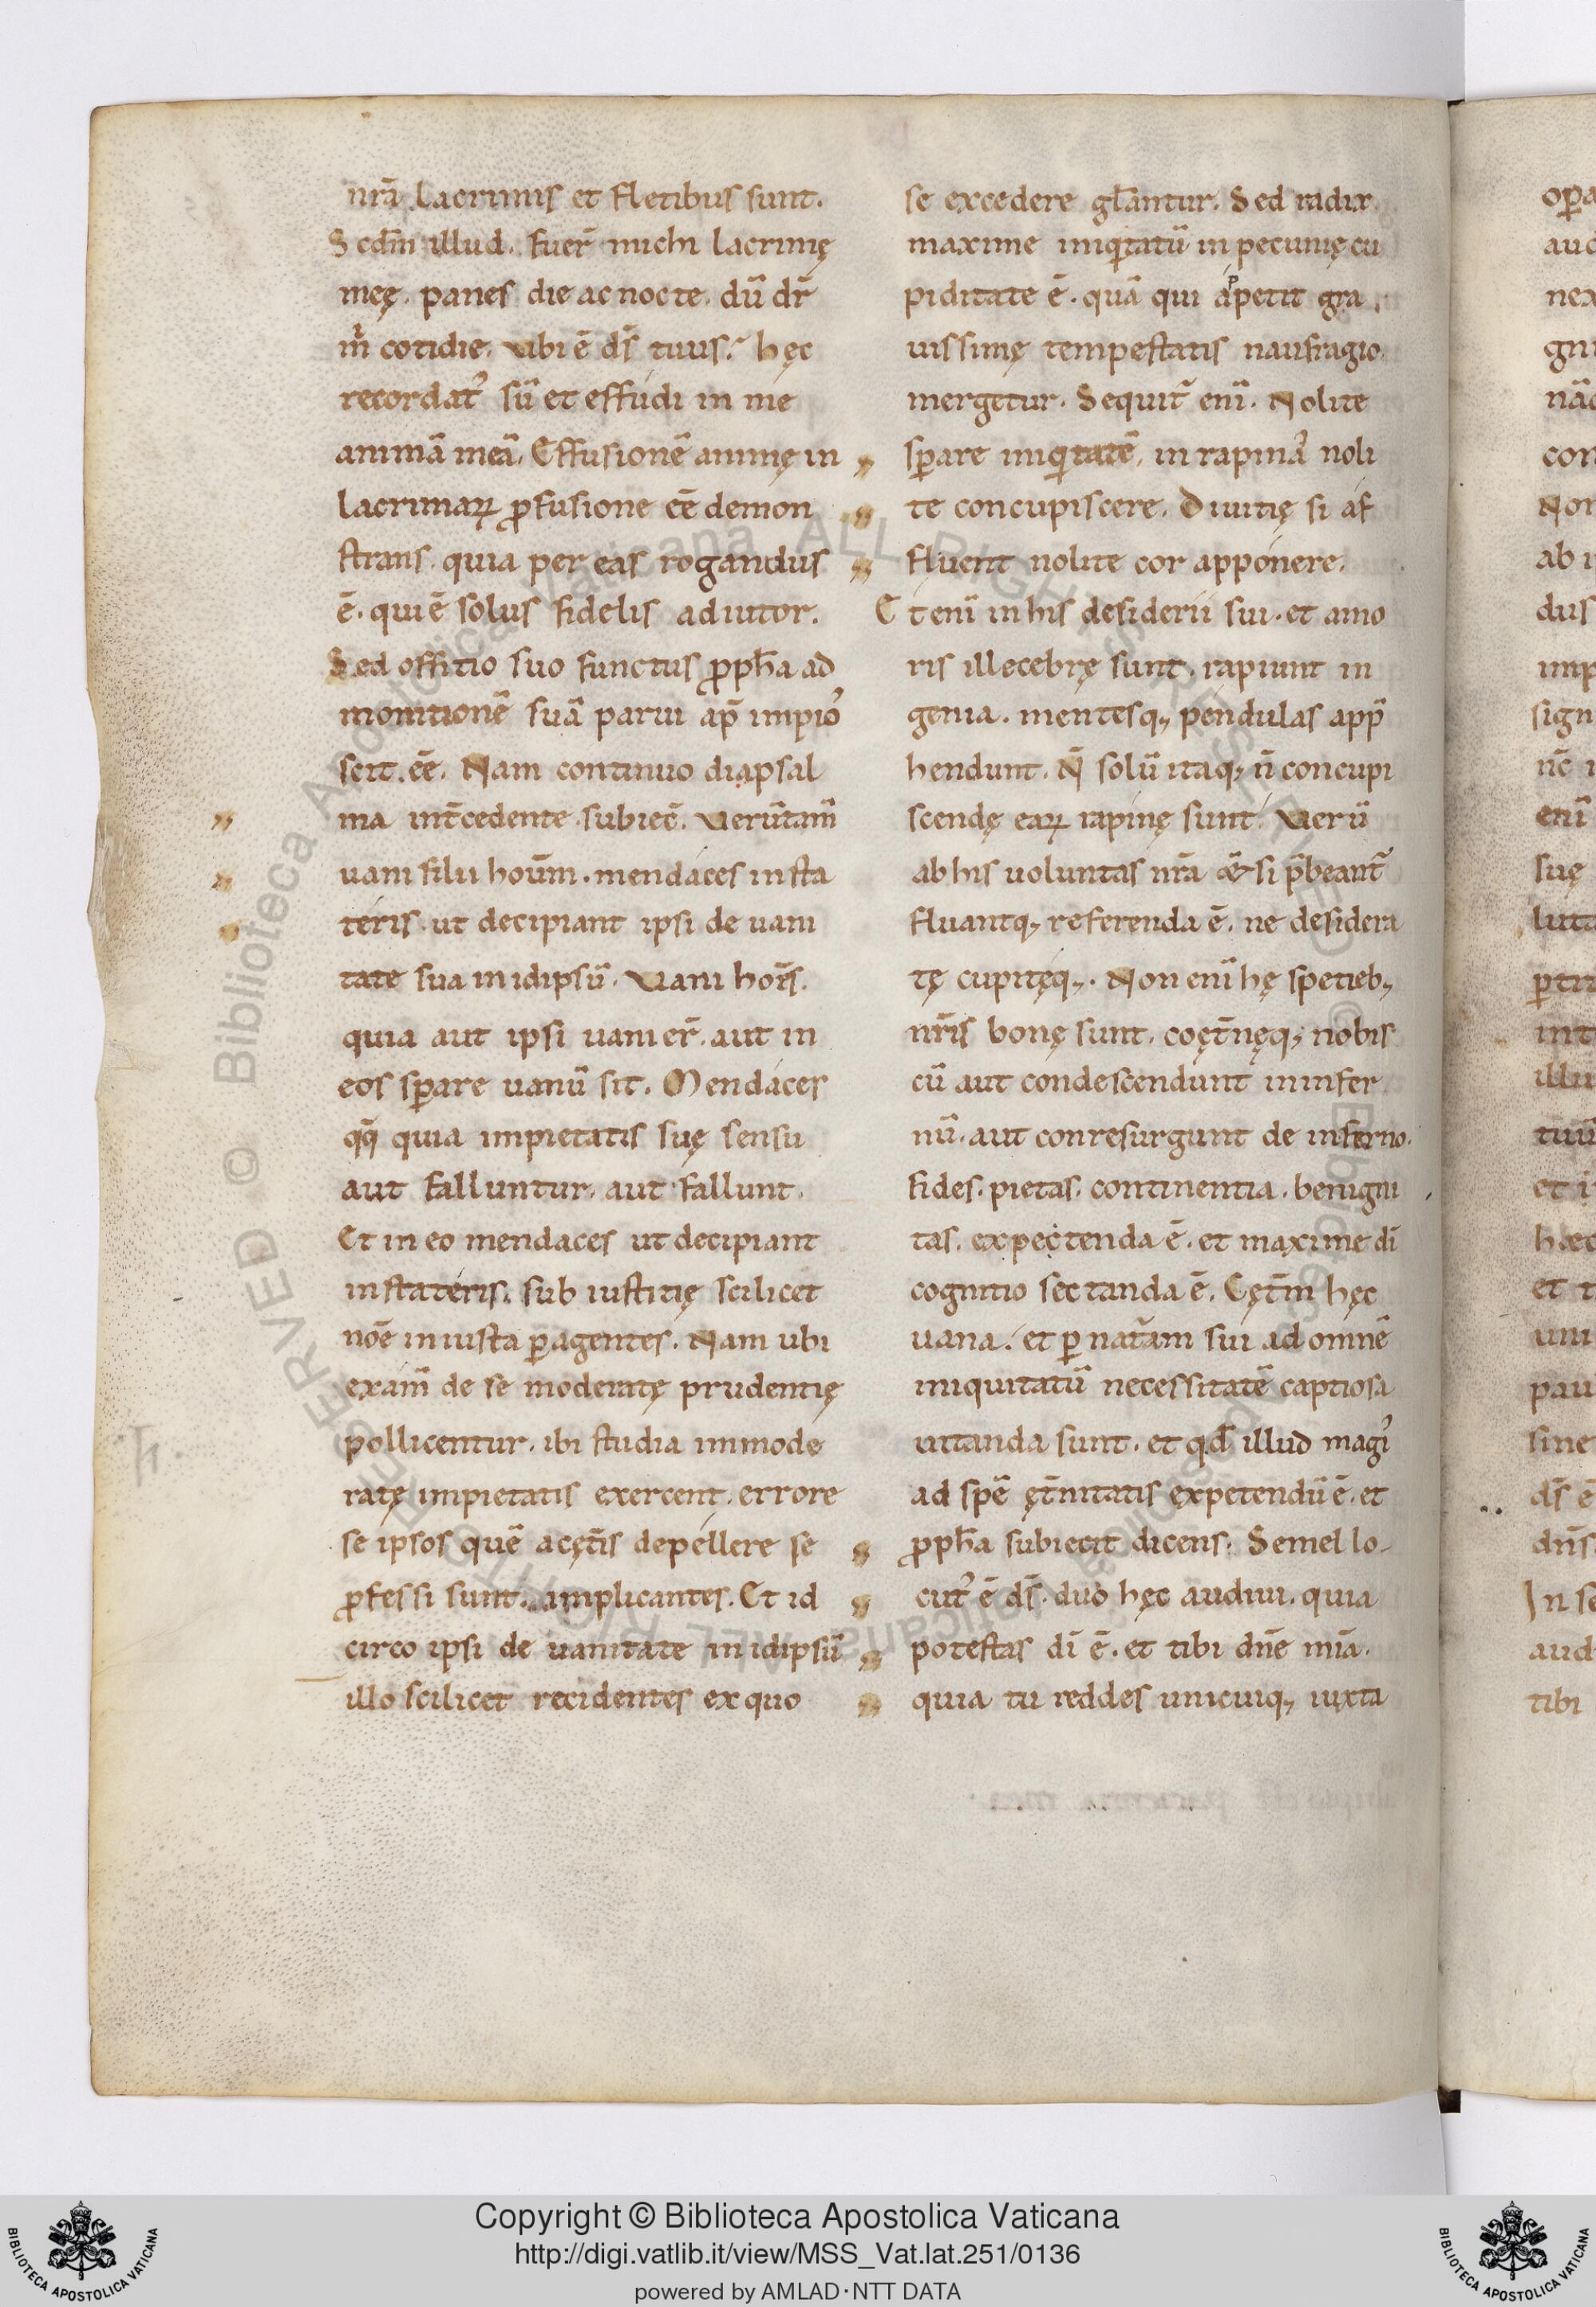 nr̄a lacrimis et fletibus sunt.
Scdm̄ illud. fuer̄ michi lacrimę
meę. panes die ac nocte. dū dr̄
m̄ cotidie. ubi ē ds̄ tuus? hęc
recordat᾽ sū et effudi in me
animā meā. Effusionē animę in
lacrimaꝝ ꝓfusione eē demon
strans. quia per eas rogandus
ē. qui ē solus fidelis adiutor.
Sed offitio suo functus ꝓph̄a ad
monitionē suā parui ap̄ impio᾽
scit. eē. Nam continuo diapsal
ma int̄cedente subiec̄. Uerūtam̄
uani filii hoūm. mendaces in sta
teris. ut decipiant ipsi de uani
tate sua in idipsū. Uani hoēs.
quia aut ipsi uani er̄. aut in
eos sꝑare uanū sit. Mendaces
qq̄ quia impietatis suę sensu
aut falluntur. aut fallunt.
Et in eo mendaces ut decipiant
in stateris. sub iustitię scilicet
noē iniusta ꝑagentes. Nam ubi
exam̄ de se moderatę prudentię
pollicentur. ibi studia immode
ratę impietatis exercent. errore
se ipsos quē a cęt̄is depellere se
ꝓfessi sunt. implicantes. Et id
circo ipsi de uanitate in idipsū
illo scilicet recidentes ex quo
se excedere gl̄antur. Sed radix
maxime iniqͥtatū in pecunię cu
piditate ē. quā qui apᵖetit gra
uissimę tempestatis naufragio
mergitur. Sequit᾽ enī. Nolite
sꝑare iniqͥtatē. in rapina᾽ noli
te concupiscere. Diuitię si af
fluent nolite cor apponere.
Et enī in his desiderii sui. et amo
ris illecebrę sunt. rapiunt in
genia. mentesq; pendulas app̄
hendunt. N̄ solū itaq; n̄ concupi
scendę eaꝝ rapinę sunt. Uerū
ab his uoluntas nr̄a & si p̄beant᾽
fluantq; referenda ē. ne desidera
tę cupitęq;. Non enī hę spetieb;
nr̄is bonę sunt. coęt̄nęq; nobis
cū aut condescendunt in infer
nū. aut conresurgunt de inferno.
fides. pietas. continentia. benigni
tas. expectenda ē. et maxime dī
cognitio sectanda ē. Cęt̄m hęc
uana. et ꝑ nat̄am sui ad omnē
iniquitatū necessitatē captiosa
uitanda sunt. et qd̄ illud magi᾽
ad spē ęt̄nitatis expetendū ē. et
ꝓph̄a subiecit dicens. Semel lo-
cut᾽ ē ds̄. duo hęc audiui. quia
potestas dī ē. et tibi dn̄e mīa.
quia tu reddes unicuiq; iuxta
opa
auc
nex
gni
nāc
con
Nor
ab i
dus
imp
sign
nc̄ i
enī
suę
luta
ꝑtit
int
illu
tuū
et i
hæc
et t
uni
pau
sine
ds̄ ē
dn̄s
In se
aud
tibi
Copyright © Biblioteca Apostolica Vaticana
http://digi.vatlib.it/view/MSS_Vat.lat.251/0136
powered by AMLAD·NTT DATA